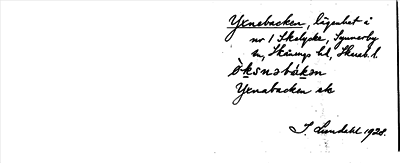 Yxnebacken, lägenhet å
nr 1 Skelycke, Synnerby
sn, Skånings hd, Skarab. l.
ö̀ksnəbákən
Yxnabacken ek
I. Lundahl 1928.